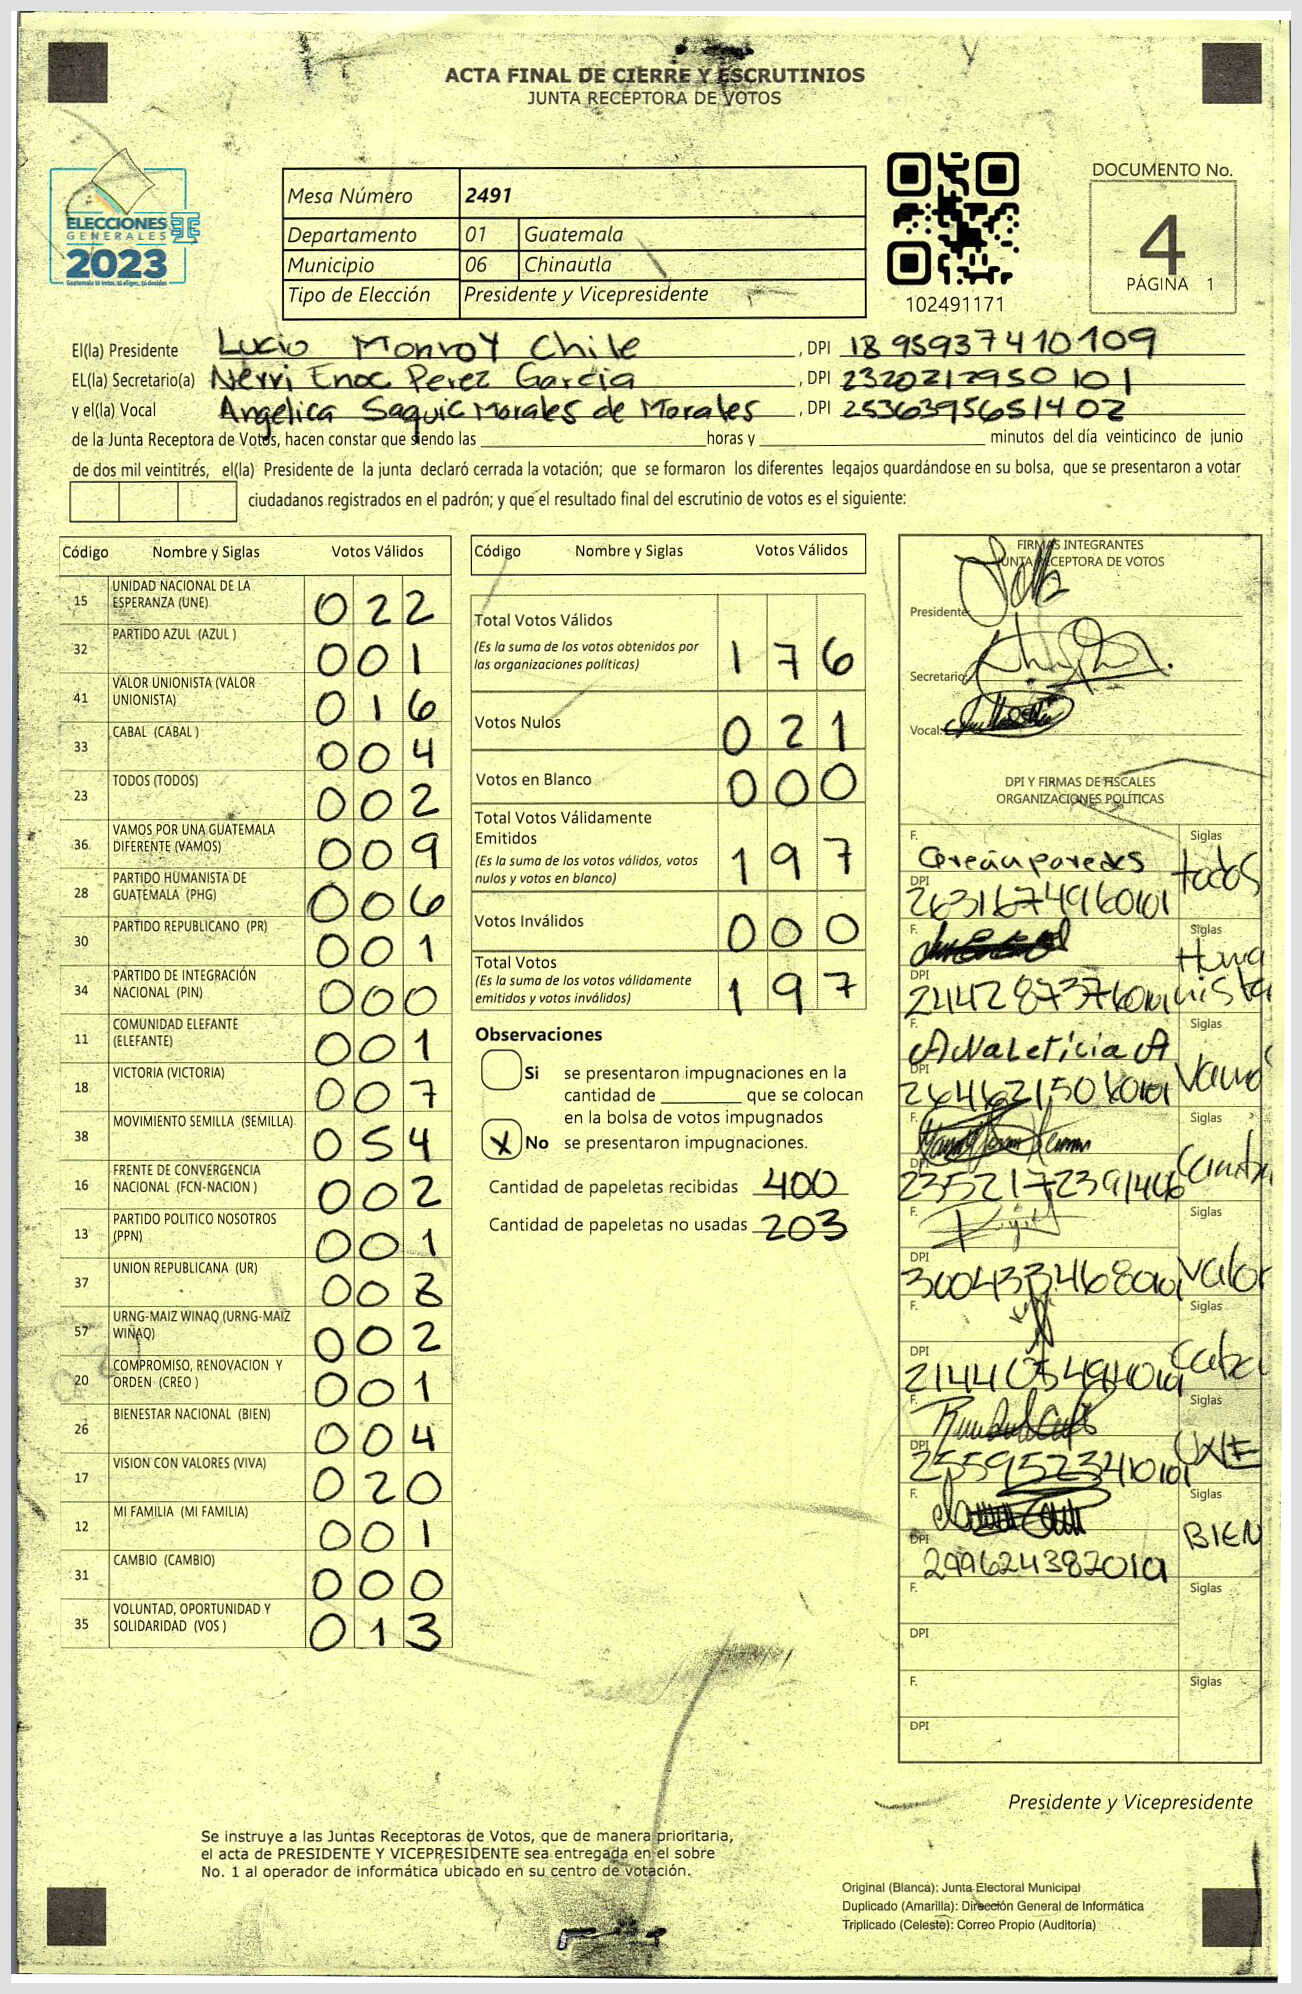 ACTA FINAL DE CIERRE Y ESCRUTINIOS
JUNTA RECEPTORA DE VOTOS
ELECCIONES
GENERALES
2023
Mesa Número 2491
Departamento 01 Guatemala
Municipio 06 Chinautla
Tipo de Elección Presidente y Vicepresidente
102491171
DOCUMENTO No.
4
PÁGINA 1
El(la) Presidente Lucio Monroy Chile , DPI 1895937410109
EL(la) Secretario(a) Nerri Enoc Perez Garcia , DPI 2320212950101
y el(la) Vocal Angelica Saquic Morales de Morales , DPI 2536395651402
de la Junta Receptora de Votos, hacen constar que siendo las horas y minutos del día veinticinco de junio
de dos mil veintitrés, el(la) Presidente de la junta declaró cerrada la votación; que se formaron los diferentes legajos guardándose en su bolsa, que se presentaron a votar
ciudadanos registrados en el padrón; y que el resultado final del escrutinio de votos es el siguiente:
Código Nombre y Siglas Votos Válidos
15 UNIDAD NACIONAL DE LA
ESPERANZA (UNE) 022
32 PARTIDO AZUL (AZUL ) 001
41 VALOR UNIONISTA (VALOR
UNIONISTA) 016
33 CABAL (CABAL ) 004
23 TODOS (TODOS) 002
36 VAMOS POR UNA GUATEMALA
DIFERENTE (VAMOS) 009
28 PARTIDO HUMANISTA DE
GUATEMALA (PHG) 006
30 PARTIDO REPUBLICANO (PR) 001
34 PARTIDO DE INTEGRACIÓN
NACIONAL (PIN) 000
11 COMUNIDAD ELEFANTE
(ELEFANTE) 001
18 VICTORIA (VICTORIA) 007
38 MOVIMIENTO SEMILLA (SEMILLA) 054
16 FRENTE DE CONVERGENCIA
NACIONAL (FCN-NACION ) 002
13 PARTIDO POLITICO NOSOTROS
(PPN) 001
37 UNION REPUBLICANA (UR)
57 URNG-MAIZ WINAQ (URNG-MAIZ
WINAQ) 002
20 COMPROMISO, RENOVACION Y
ORDEN (CREO ) 001
26 BIENESTAR NACIONAL (BIEN) 004
17 VISION CON VALORES (VIVA) 020
12 MI FAMILIA (MI FAMILIA) 001
31 CAMBIO (CAMBIO) 000
35 VOLUNTAD, OPORTUNIDAD Y
SOLIDARIDAD (VOS ) 013
Código Nombre y Siglas Votos Válidos
Total Votos Válidos
(Es la suma de los votos obtenidos por
las organizaciones políticas) 176
Votos Nulos 021
Votos en Blanco 000
Total Votos Válidamente
Emitidos
(Es la suma de los votos válidos, votos
nulos y votos en blanco) 197
Votos Inválidos 000
Total Votos
(Es la suma de los votos válidamente
emitidos y votos inválidos) 197
Observaciones
Si se presentaron impugnaciones en la
cantidad de que se colocan
en la bolsa de votos impugnados
X No se presentaron impugnaciones.
Cantidad de papeletas recibidas 400
Cantidad de papeletas no usadas 203
FIRMAS INTEGRANTES
JUNTA RECEPTORA DE VOTOS
Presidente:
Secretario:
Vocal:
DPI Y FIRMAS DE FISCALES
ORGANIZACIONES POLÍTICAS
F. Siglas
todos
DPI 2631674960101
F. Siglas
Huma
nista
DPI 2442873760101
F. Siglas
Ana Leticia A
DPI 2646215060101
F. Siglas
DPI
F. Siglas
Valor
DPI
F. Siglas
DPI
F. Siglas
UNE
DPI 2559523410101
F. Siglas
BIEN
DPI
F. Siglas
DPI
F. Siglas
DPI
Presidente y Vicepresidente
Se instruye a las Juntas Receptoras de Votos, que de manera prioritaria,
el acta de PRESIDENTE Y VICEPRESIDENTE sea entregada en el sobre
No. 1 al operador de informática ubicado en su centro de votación.
Original (Blanca): Junta Electoral Municipal
Duplicado (Amarilla): Dirección General de Informática
Triplicado (Celeste): Correo Propio (Auditoría)